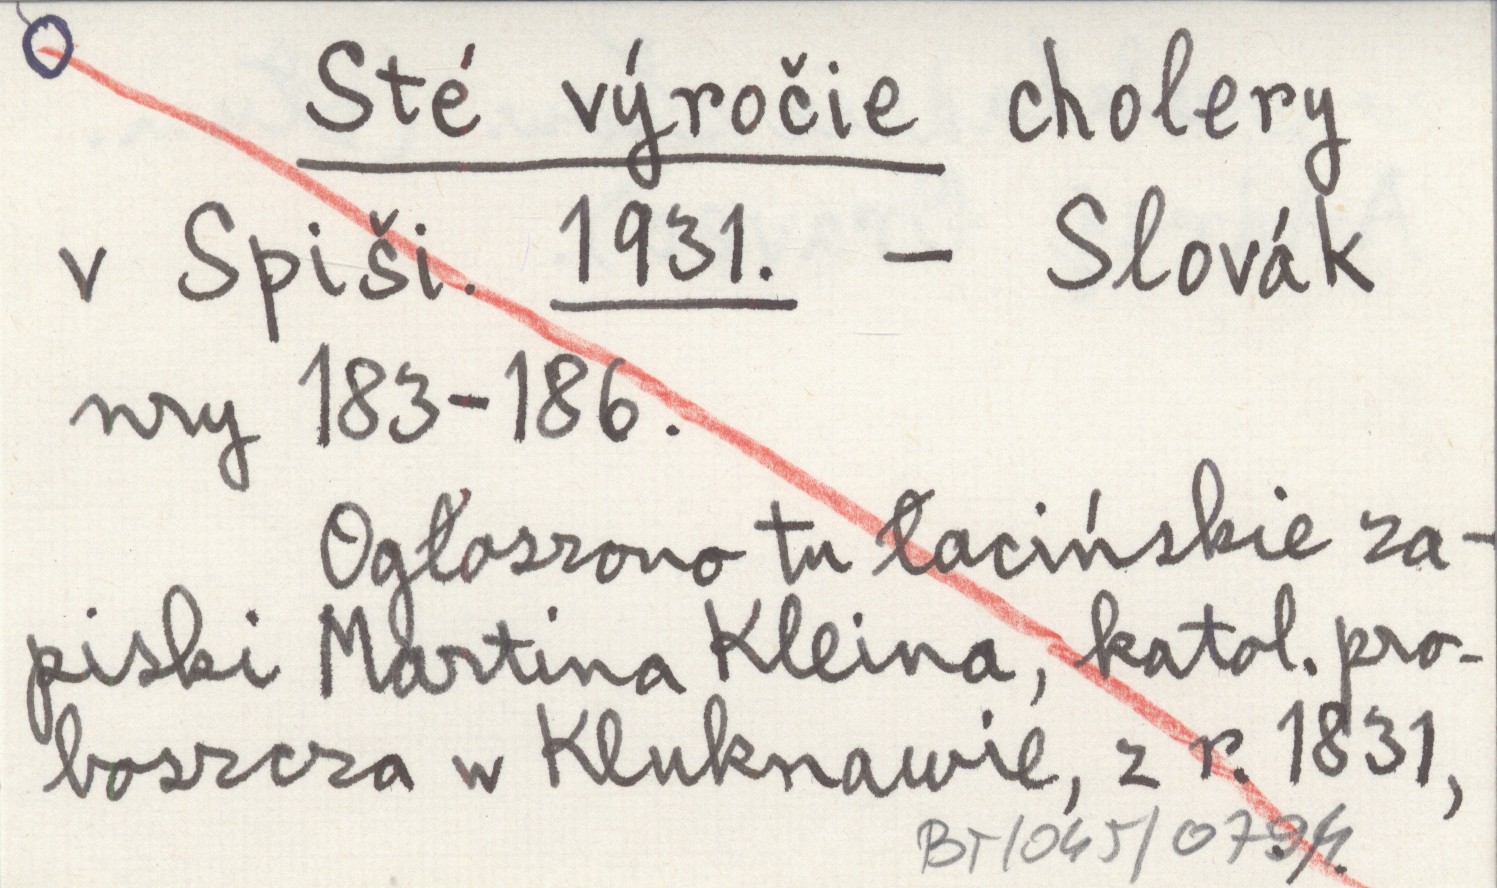 Sté výročie cholery
v Spiši. 1931. – Slovák
nry 183-186.
Ogłoszono tu łacińskie za-
piski Martina Kleina, katol. pro-
boszcza w Kluknawie, z r. 1831,
BT/045/079